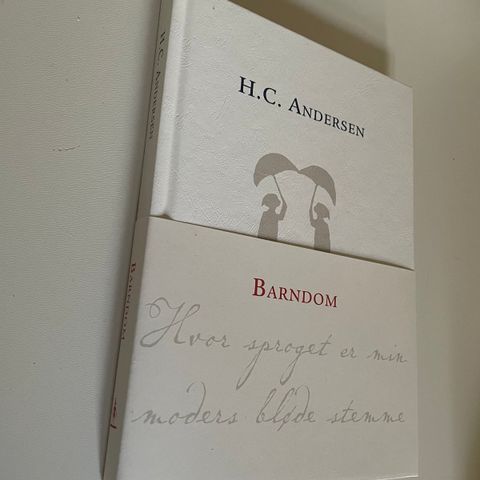 H.C. ANDERSEN
H.C. ANDERSEN
BARNDOM
BARNDOM
Hvor sproget er min
moders bløde stemme